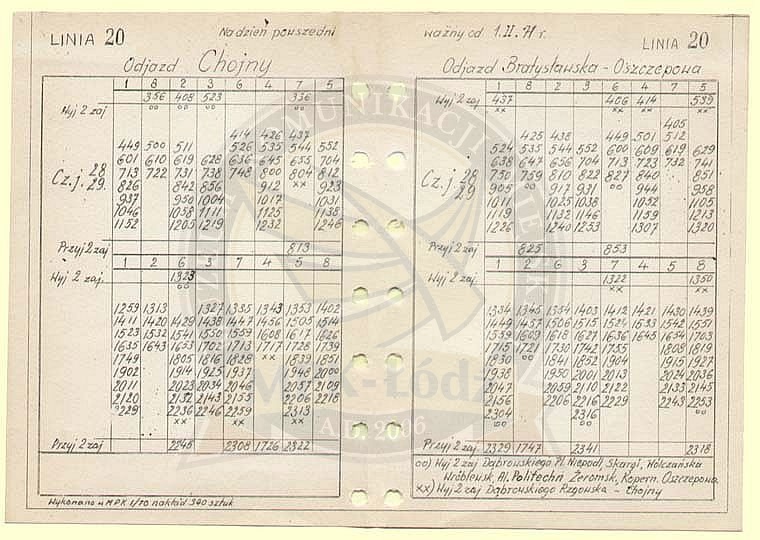 LINIA 20 Na dzień powszedni
Odjazd Chojny
1 8 2 3 6 4 7 5
Wyj 2 zaj 356 408 523 336
oo oo oo oo
414 426 437
449 500 511 526 535 544 552
601 610 619 628 636 645 655 704
Cz. j. 28 29. 713 722 731 738 748 800 804 812
826 842 856 912 xx 923
937 950 1004 1017 1031
1046 1058 1111 1125 1138
1152 1205 1219 1232 1246
Przyj 2 zaj 813
1 2 6 3 7 4 5 8
Wyj 2 zaj. 1323
oo
1259 1313 1327 1335 1343 1353 1402
1411 1420 1429 1438 1447 1456 1505 1514
1523 1532 1541 1550 1559 1608 1617 1626
1635 1643 1653 1702 1713 1717 1728 1739
1749 1805 1816 1828 xx 1839 1851
1902 1914 1925 1937 1948 2000
2011 2023 2034 2046 2057 2109
2120 2132 2143 2155 2206 2218
2229 2236 2246 2259 2313
xx xx xx xx
Przyj 2 zaj 2245 2308 1726 2322
Wykonano w MPK 1/70 nakład 340 sztuk
ważny od 1.II.71 r.
LINIA 20
Odjazd Bratysławska - Oszczepowa
1 8 2 3 6 4 7 5
Wyj 2 zaj 437 406 414 539
xx xx xx xx
405
425 438 449 501 512
524 535 544 552 600 609 619 629
638 647 656 704 713 723 732 741
Cz. j. 28 29 750 759 810 822 827 840 851
905 oo 917 931 oo 944 958
1011 1025 1038 1052 1105
1119 1132 1146 1159 1213
1226 1240 1253 1307 1320
Przyj 2 zaj 825 853
1 2 6 3 7 4 5 8
Wyj 2 zaj 1322 1350
xx xx
1334 1345 1354 1403 1412 1421 1430 1439
1449 1457 1506 1515 1524 1533 1542 1551
1559 1609 1618 1627 1636 1645 1654 1703
1715 1721 1730 1742 1755 1808 1819
1830 oo 1841 1852 1904 1915 1927
1938 1950 2001 2013 2024 2036
2047 2059 2110 2122 2133 2145
2156 2206 2216 2229 2243 2253
2304 2316 oo
oo oo
Przyj 2 zaj 2329 1747 2341 2318
oo) Wyj 2 zaj Dąbrowskiego Pl. Niepodl, Skargi, Wólczańska
Wróblewsk, Al. Politechn Żeromsk, Kopern. Oszczepowa.
xx) Wyj 2 zaj Dąbrowskiego Rzgowska - Chojny
KOMUNIKACJI MIEJSKIEJ
MPK-Łódź
A.D. 2006